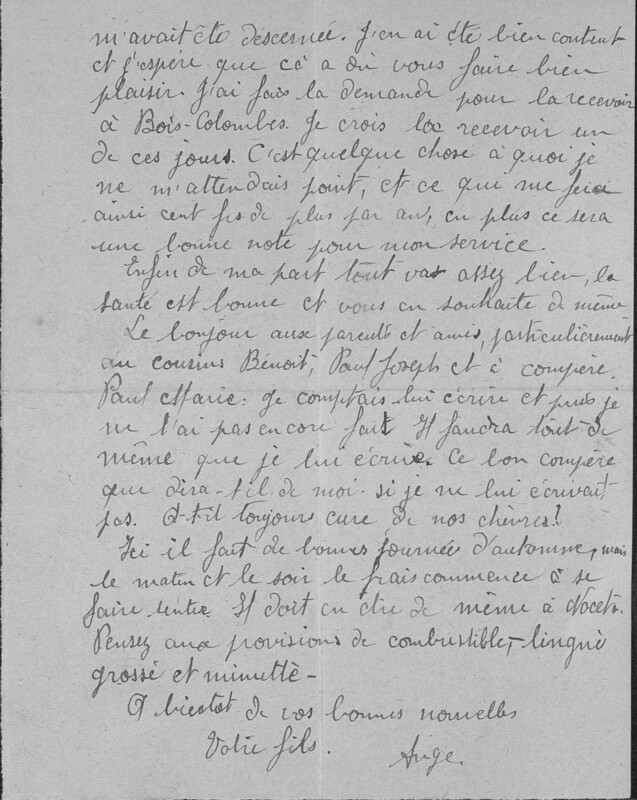 m'avait été descernée. J'en ai été bien content
et j'espère que cè a dû vous faire bien
plaisir. J'ai fais la demande pour la recevoir
à Bois-Colombes. Je crois la recevoir un
de ces jours. C'est quelque chose à quoi je
ne m'attendais point, et ce que me fera
ainsi cent frs de plus par an, en plus ce sera
une bonne note pour mon service.
Enfin de ma part tout vas assez bien, la
santé est bonne et vous en souhaite de même
Le bonjour aux parents et amis, particulièrement
au cousins Bénoit, Paul Joseph et à compère
Paul Marie. Je comptais lui écrire et puis je
ne l'ai pas encore fait Il faudra tout de
même que je lui écrive. Ce bon compère
que dira-t-il de moi si je ne lui écrivait
pas. A-t-il toujour cure de nos chèvres?
Ici il fait de bonnes journée d'automne, mais
le matin et le soir le frais commence à se
faire sentir. Il doit en être de même à Noceta.
Pensez aux provisions de combustible, - lingue
grosse et minutte -
A bientot de vos bonnes nouvelles
Votre fils. Ange.